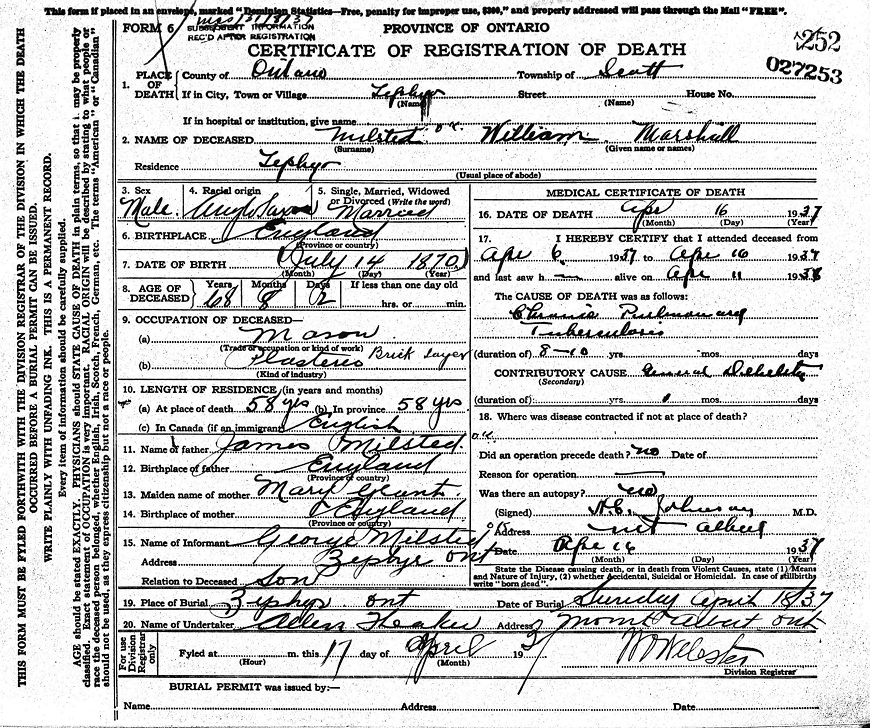 This form if placed in an envelope, marked "Dominion Statistics—Free, penalty for improper use, $300," and properly addressed will pass through the Mail "FREE".
THIS FORM MUST BE FYLED FORTHWITH WITH THE DIVISION REGISTRAR OF THE DIVISION IN WHICH THE DEATH
OCCURRED BEFORE A BURIAL PERMIT CAN BE ISSUED.
WRITE PLAINLY WITH UNFADING INK. THIS IS A PERMANENT RECORD.
Every item of information should be carefully supplied.
AGE should be stated EXACTLY. PHYSICIANS should STATE CAUSE OF DEATH in plain terms, so that it may be properly
classified. Exact statement of OCCUPATION is very important. RACIAL ORIGIN will be described by stating to what people or
race the deceased person belonged, whether English, Irish, Scotch, French, German, etc. The terms "American" or "Canadian"
should not be used, as they express citizenship but not a race or people.
FORM 6
SUBSEQUENT INFORMATION
REC'D AFTER REGISTRATION
PROVINCE OF ONTARIO
CERTIFICATE OF REGISTRATION OF DEATH
252
027253
1. PLACE OF DEATH County of Ontario Township of Scott
If in City, Town or Village Zephyr Street House No.
(Name) (Name)
If in hospital or institution, give name
2. NAME OF DECEASED Milsted William Marshall
(Surname) (Given name or names)
Residence Zephyr
(Usual place of abode)
3. Sex Male 4. Racial origin Anglo Saxon 5. Single, Married, Widowed or Divorced (Write the word) Married
6. BIRTHPLACE England
(Province or country)
7. DATE OF BIRTH July 14 1870
(Month) (Day) (Year)
8. AGE OF DECEASED Years 68 Months 8 Days 2 If less than one day old hrs. or min.
9. OCCUPATION OF DECEASED—
(a) Mason
(Trade or occupation or kind of work)
(b) Brick Layer
(Kind of industry)
10. LENGTH OF RESIDENCE (in years and months)
(a) At place of death 58 yrs (b) In province 58 yrs
(c) In Canada (if an immigrant) English
11. Name of father James Milsted
12. Birthplace of father England
(Province or country)
13. Maiden name of mother Mary Grunt
14. Birthplace of mother England
(Province or country)
15. Name of Informant George Milsted
Address Zephyr Ont
Relation to Deceased Son
MEDICAL CERTIFICATE OF DEATH
16. DATE OF DEATH Apr 16 1937
(Month) (Day) (Year)
17. I HEREBY CERTIFY that I attended deceased from
Apr 6 1937 to Apr 16 1937
and last saw h alive on Apr 11 193
The CAUSE OF DEATH was as follows:
Chronic Pulmonary
Tuberculosis
(duration of) 8-10 yrs. mos. days
CONTRIBUTORY CAUSE General Debility
(Secondary)
(duration of) yrs. mos. days
18. Where was disease contracted if not at place of death?
Did an operation precede death? no Date of
Reason for operation
Was there an autopsy? no
(Signed) H.C. Johnson M.D.
Address Mt Albert
Date Apr 16 1937
(Month) (Day) (Year)
State the Disease causing death, or in death from Violent Causes, state (1) Means
and Nature of Injury, (2) whether Accidental, Suicidal or Homicidal. In case of stillbirths
write "born dead".
19. Place of Burial Zephyr Ont Date of Burial Sunday April 18/37
20. Name of Undertaker Theaker Address Mount Albert Ont
For use Division Registrar only
Fyled at m. this 17 day of April 193
(Hour) (Month)
W Webster
Division Registrar
BURIAL PERMIT was issued by:—
Name Address Date